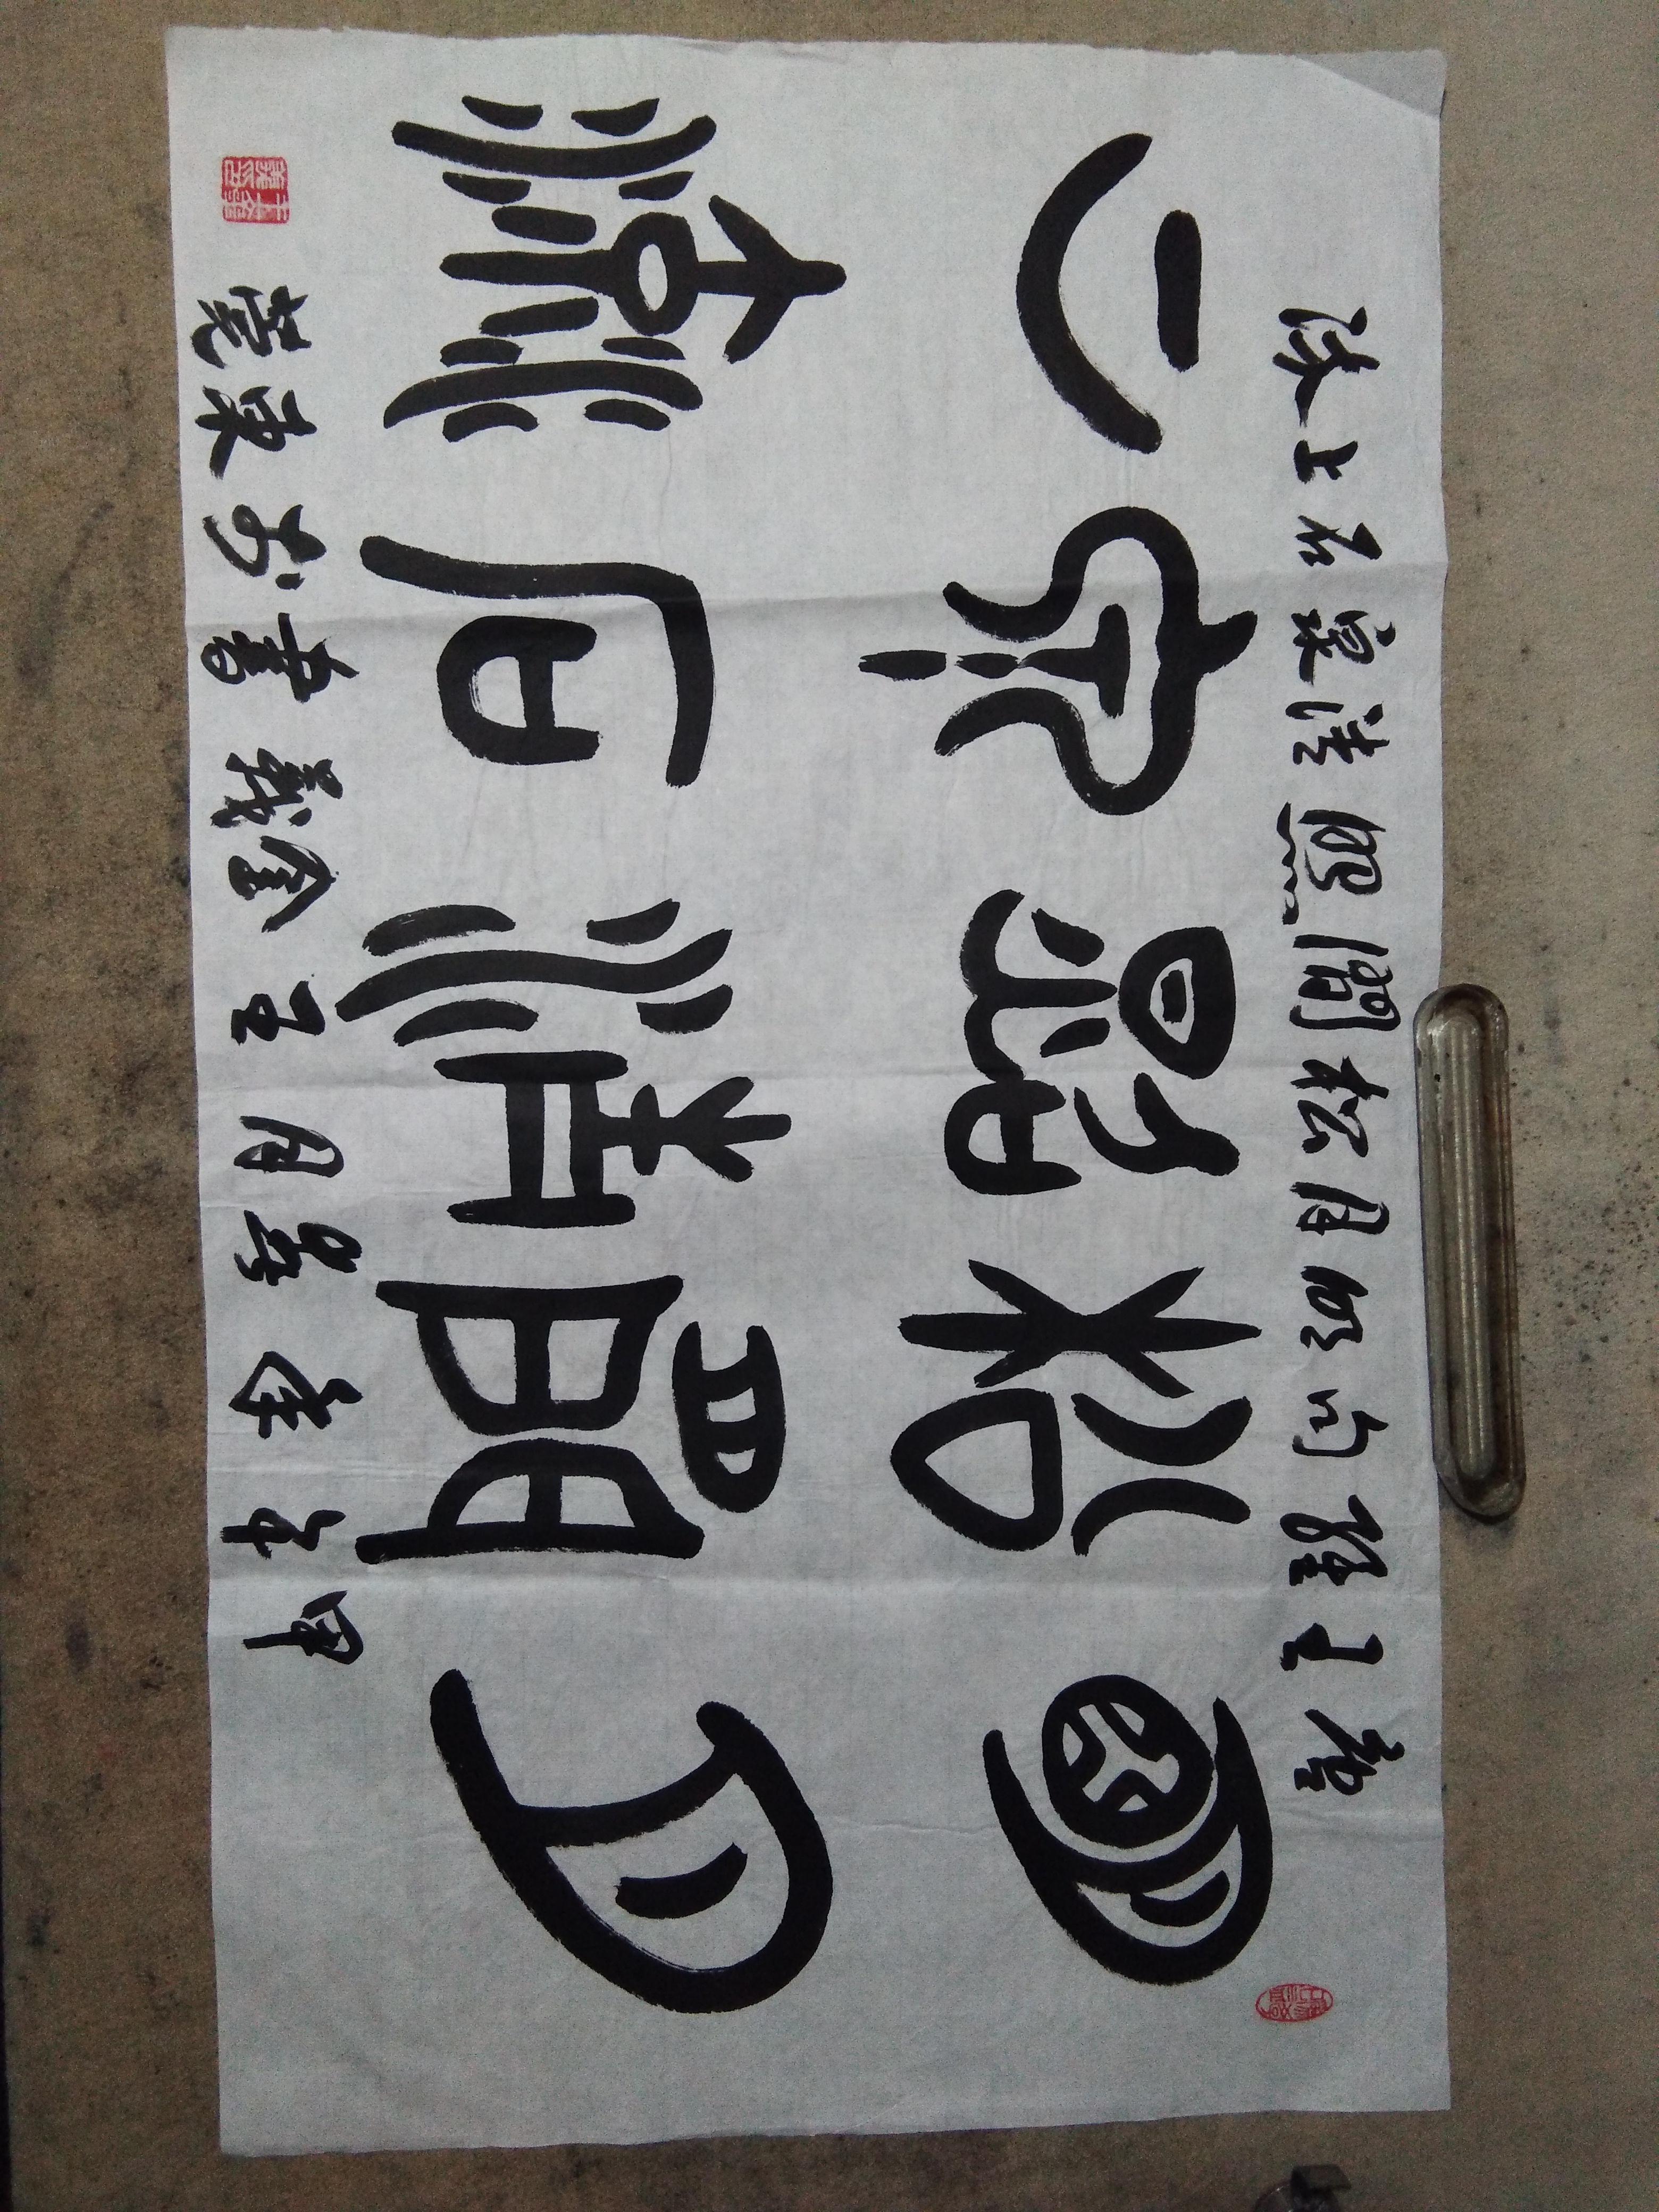 唐王維句明月松間照清泉石上流
明月
松間
照清
泉石
上流
甲午 月王金義書於東莞